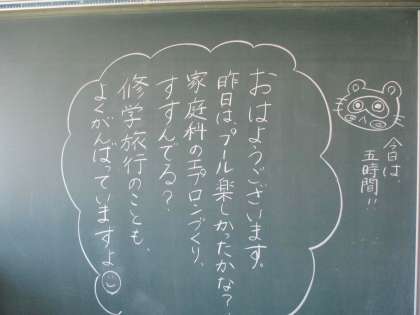 今日は、
五時間!!
おはようございます。
昨日は、プール楽しかったかな？
家庭科のエプロンづくり、
すすんでる？
修学旅行のことも、
よくがんばっていますよ